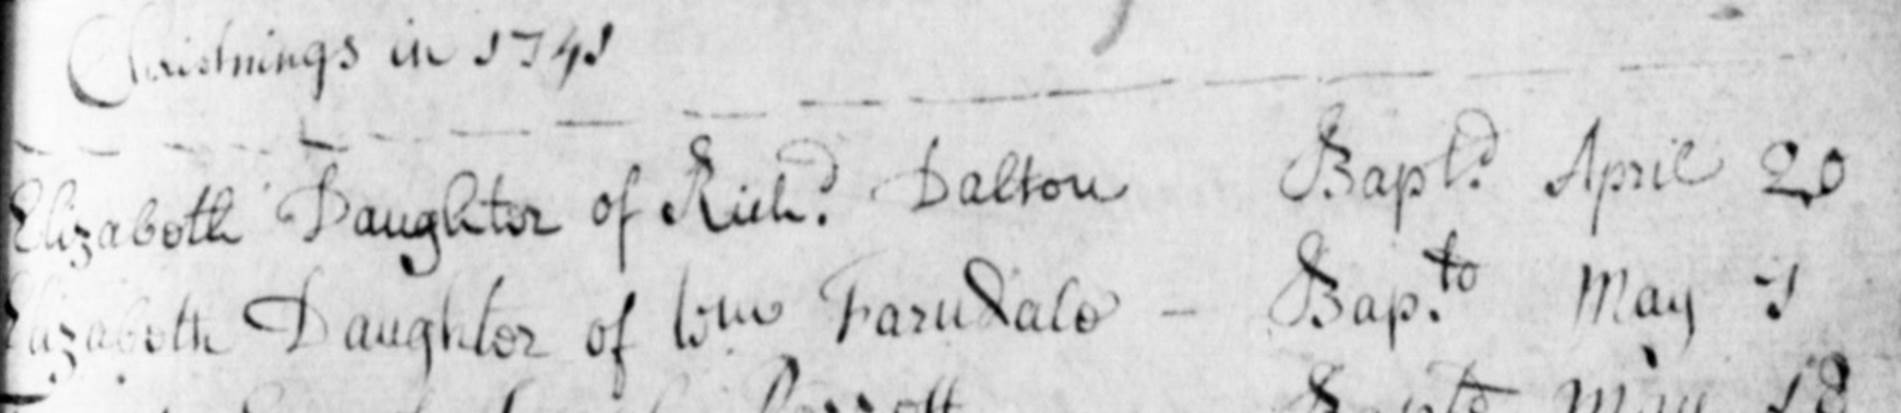 Christnings in 1741
Elizabeth Daughter of Rich.d Dalton Bapt.d April 20
Elizabeth Daughter of Wm Farndale - Bap.td May 1
Perrott Bapt May 18